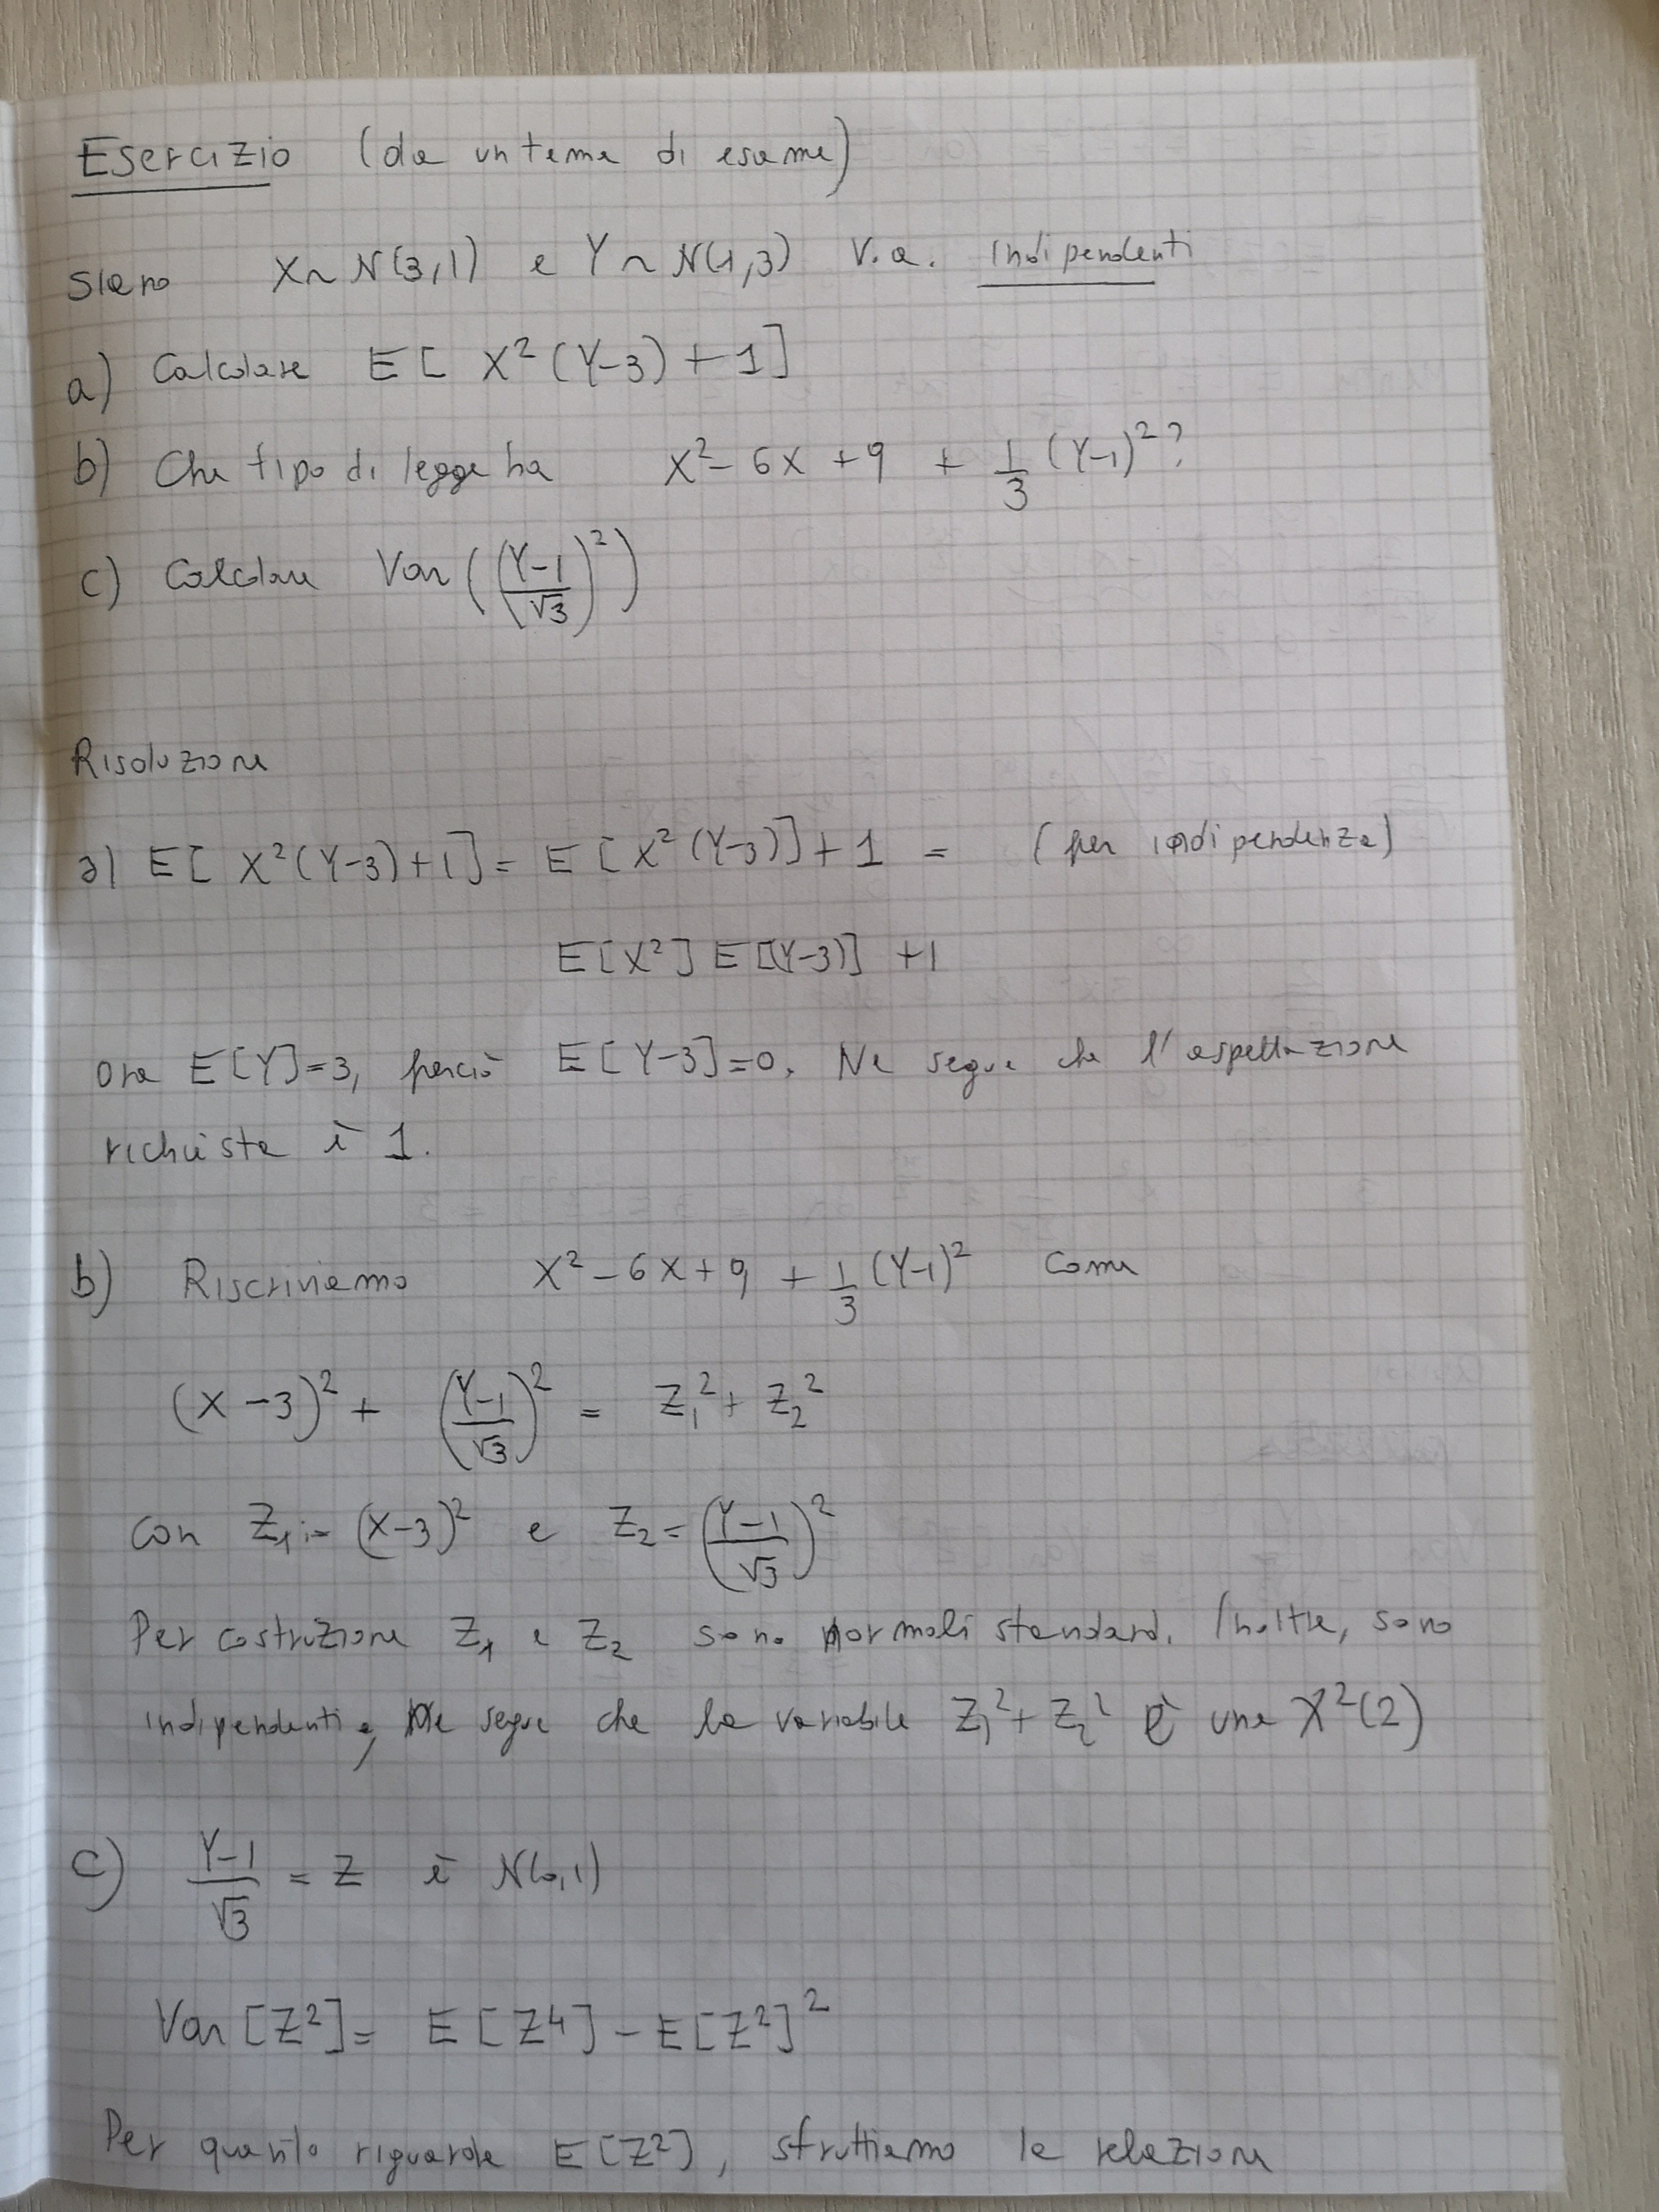 Esercizio (da un tema di esame)
Siano X ~ N(3,1) e Y ~ N(1,3) V.a. indipendenti
a) Calcolare E[X²(Y-3)+1]
b) Che tipo di legge ha X²-6X+9 + 1/3 (Y-1)²?
c) Calcolare Var(((Y-1)/√3)²)
Risoluzione
a) E[X²(Y-3)+1] = E[X²(Y-3)]+1 = (per indipendenza)
E[X²] E[(Y-3)] +1
Ora E[Y]=3, perciò E[Y-3]=0. Ne segue che l'aspettazione
richiesta è 1.
b) Riscriviamo X²-6X+9 + 1/3 (Y-1)² come
(X-3)² + ((Y-1)/√3)² = Z₁² + Z₂²
con Z₁ := (X-3)² e Z₂ = ((Y-1)/√3)²
Per costruzione Z₁ e Z₂ sono normali standard. Inoltre, sono
indipendenti e, ne segue che la variabile Z₁² + Z₂² è una χ²(2)
c) (Y-1)/√3 = Z è N(0,1)
Var[Z²] = E[Z⁴] - E[Z²]²
Per quanto riguarda E[Z²], sfruttiamo la relazione